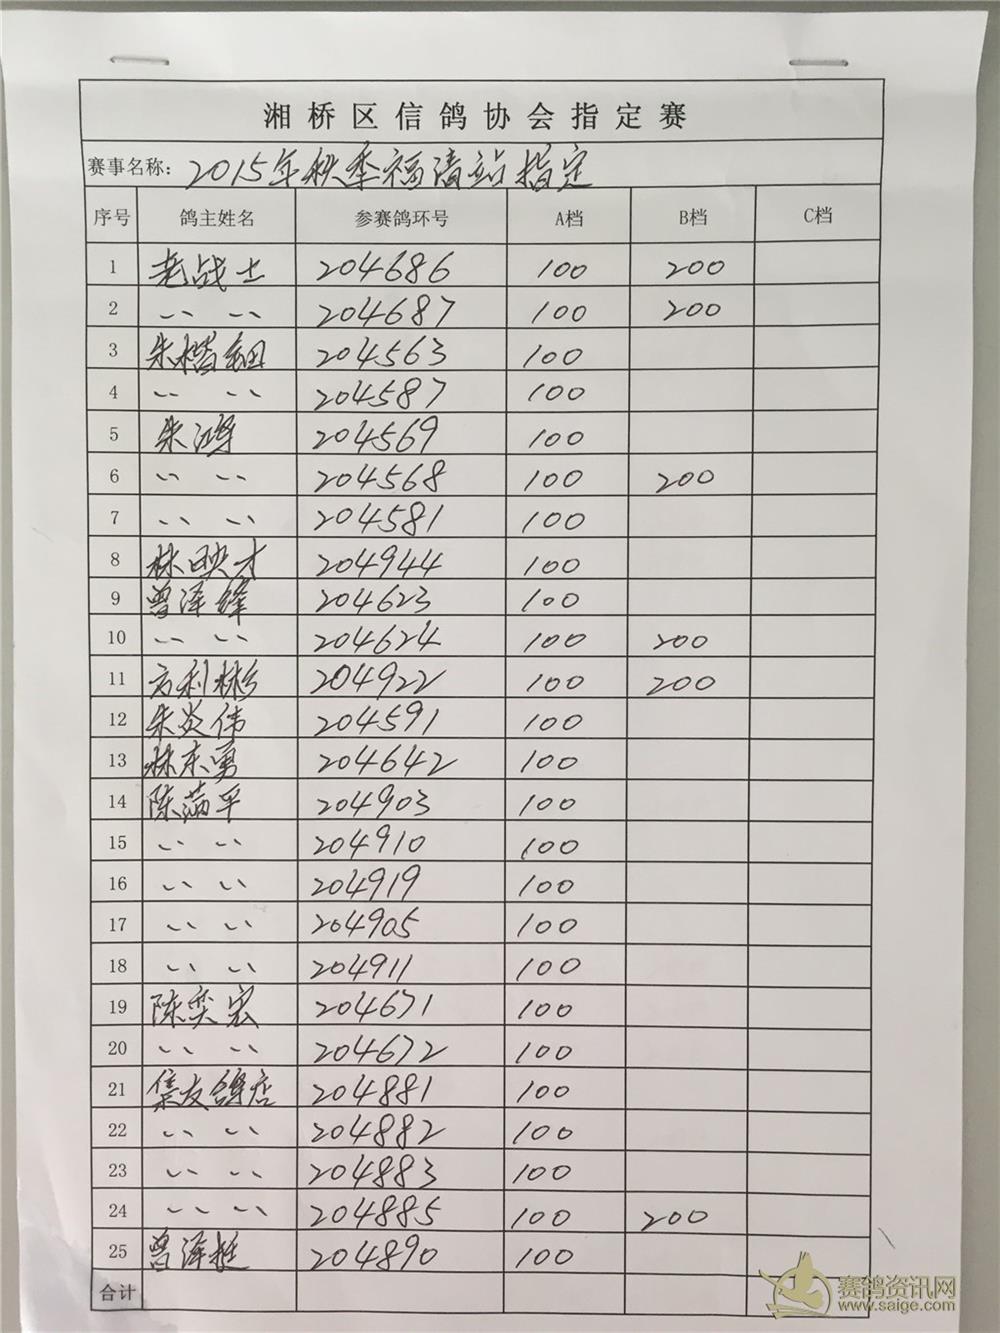 湘桥区信鸽协会指定赛
赛事名称: 2015年秋季福清站指定
序号 鸽主姓名 参赛鸽环号 A档 B档 C档
1 老战士 204686 100 200
2 〃 〃 204687 100 200
3 朱楷钿 204563 100
4 〃 〃 204587 100
5 朱鸿 204569 100
6 〃 〃 204568 100 200
7 〃 〃 204581 100
8 林映才 204944 100
9 曾泽锋 204623 100
10 〃 〃 204624 100 200
11 方利彬 204922 100 200
12 朱炎伟 204591 100
13 林东勇 204642 100
14 陈满平 204903 100
15 〃 〃 204910 100
16 〃 〃 204919 100
17 〃 〃 204905 100
18 〃 〃 204911 100
19 陈奕宏 204671 100
20 〃 〃 204672 100
21 集友鸽店 204881 100
22 〃 〃 204882 100
23 〃 〃 204883 100
24 〃 〃 204885 100 200
25 曾泽挺 204890 100
合计
赛鸽资讯网
www.saige.com